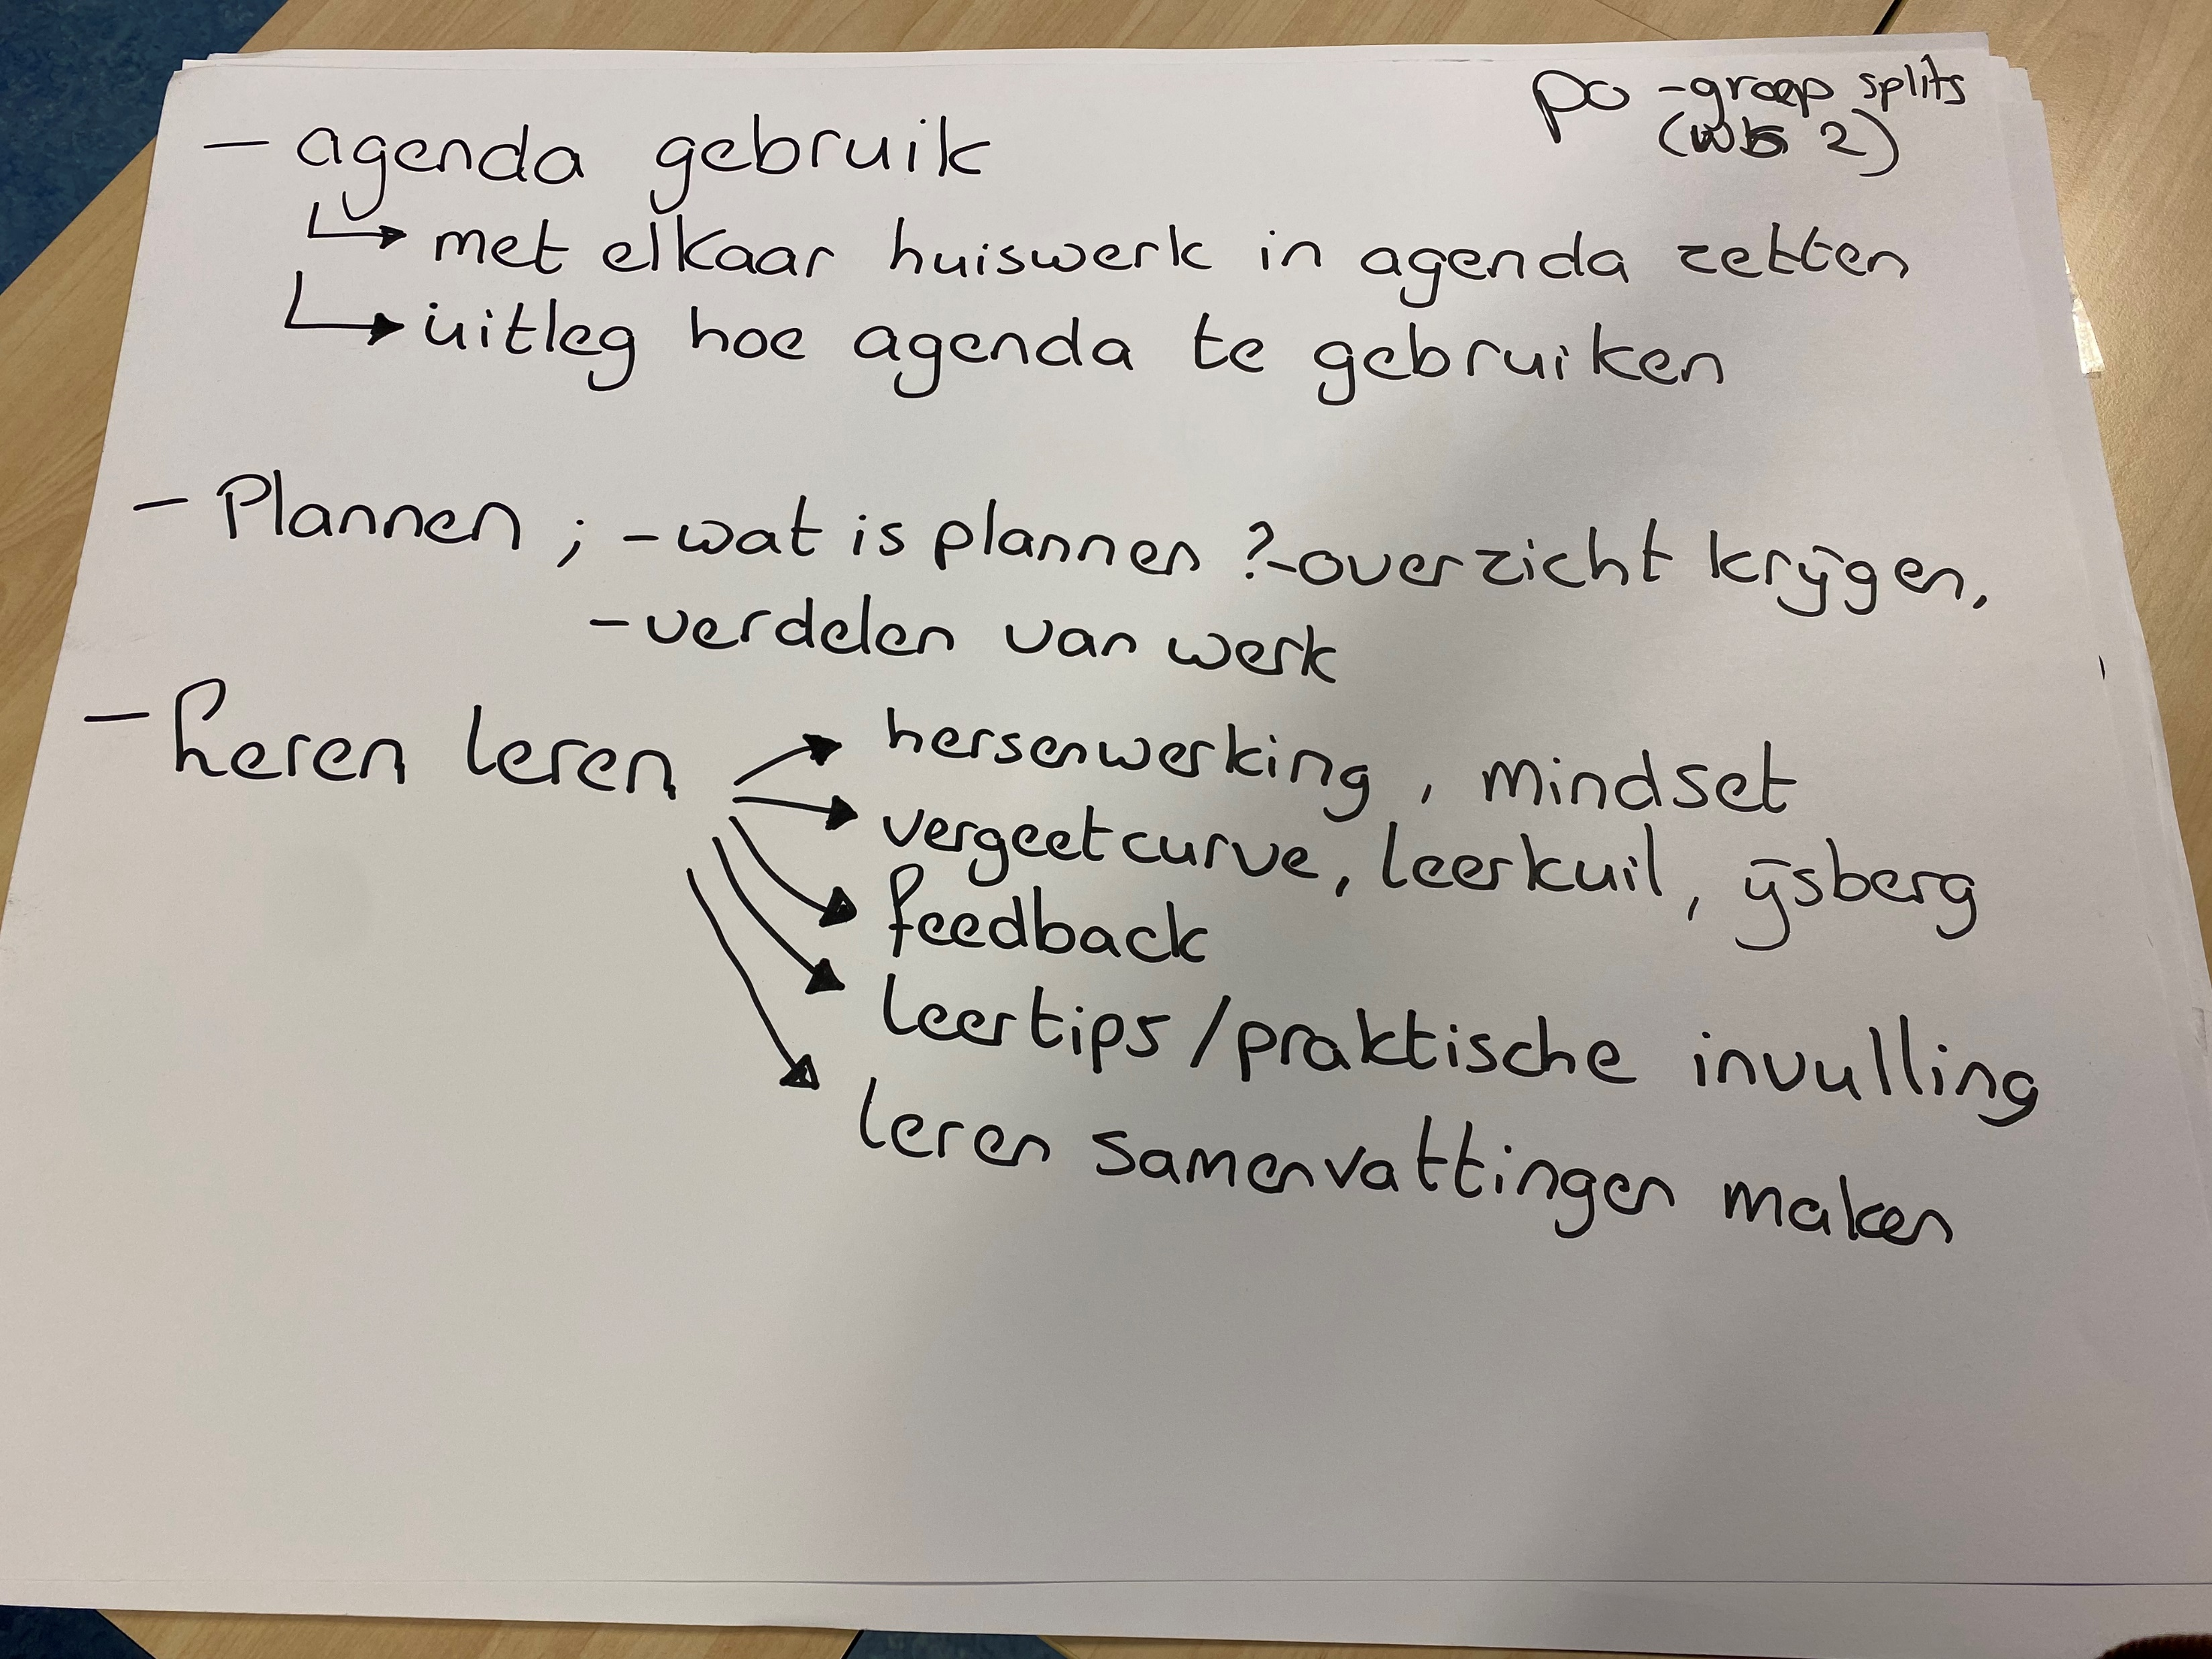 po - groep splits
(wb 2)
- agenda gebruik
↳ met elkaar huiswerk in agenda zetten
↳ uitleg hoe agenda te gebruiken
- Plannen ; - wat is plannen ? - overzicht krijgen,
- verdelen van werk
- Leren leren → hersenwerking, mindset
→ vergeetcurve, leerkuil, ijsberg
→ feedback
→ leertips / praktische invulling
→ leren samenvattingen maken